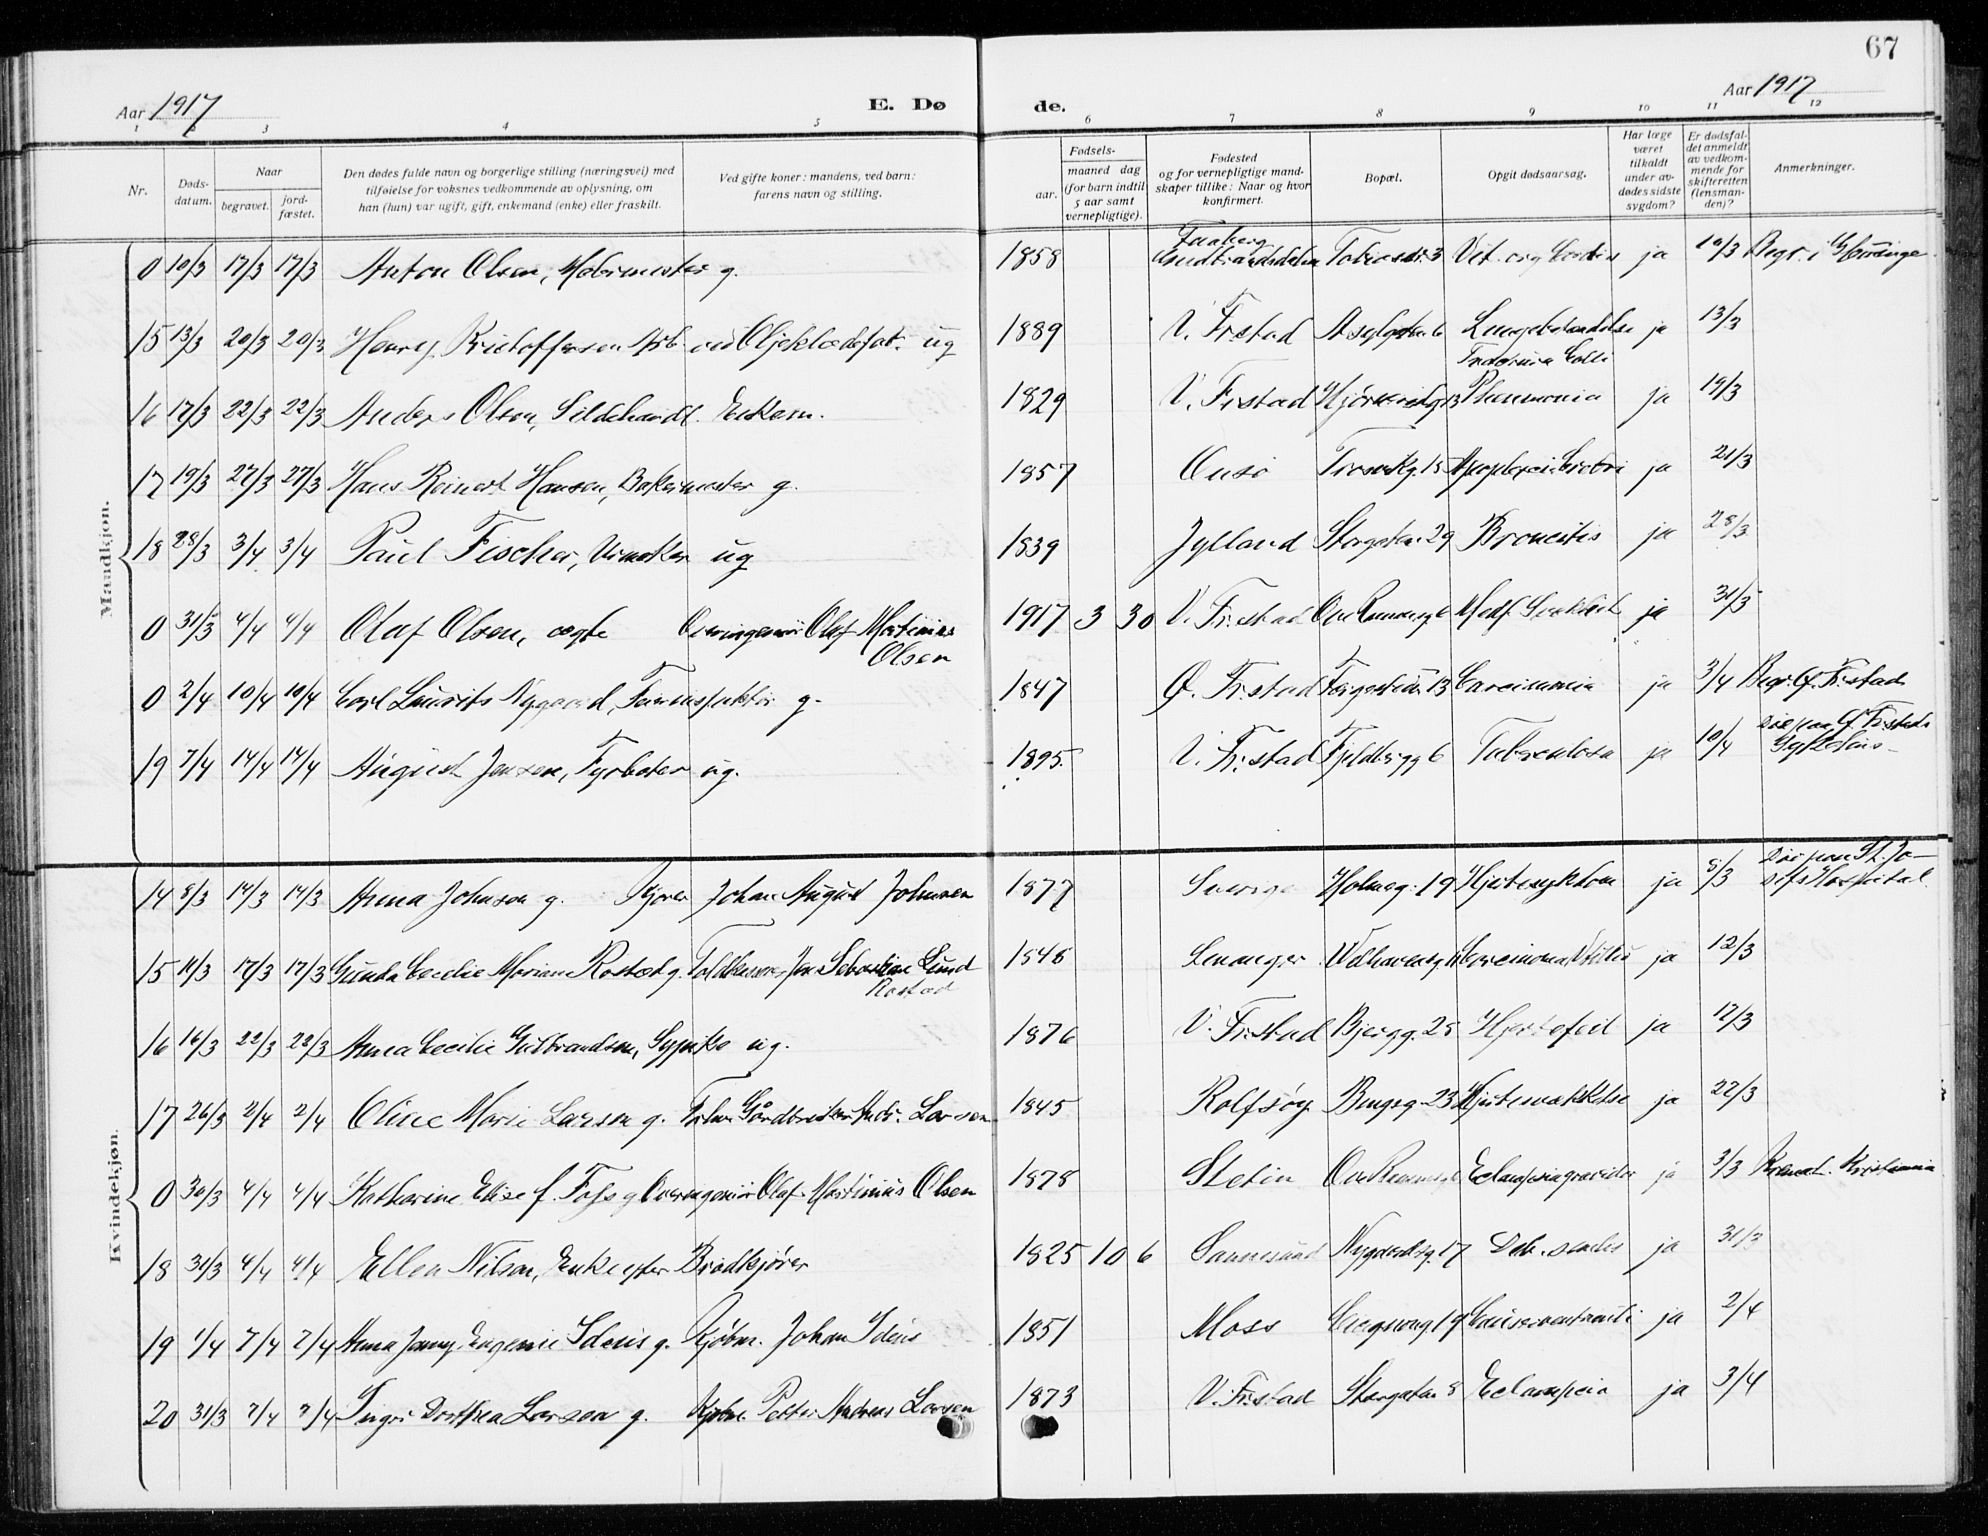 67
Aar 1917 E. Dø de. Aar 1917
1 2 3 4 5 6 7 8 9 10 11 12
Nr. Døds-datum. Naar begravet. jord-fæstet. Den dødes fulde navn og borgerlige stilling (næringsvei) med tilføielse for voksnes vedkommende av oplysning, om han (hun) var ugift, gift, enkemand (enke) eller fraskilt. Ved gifte koner: mandens, ved barn: farens navn og stilling. Fødsels- aar. maaned dag (for barn indtil 5 aar samt vernepligtige). Fødested og for vernepligtige mand-skaper tillike: Naar og hvor konfirmert. Bopæl. Opgit dødsaarsag. Har læge været tilkaldt under av-dødes sidste sygdom? Er dødsfal-det anmeldt av vedkom-mende for skifteretten (lensman-den)? Anmerkninger.
Mandkjøn.
0 10/3 17/3 17/3 Anton Olsen, g. 1858 Faaberg Gudbrandsdalen 3 Vit. org. Cordis ja 10/3 Begr. i
15 13/3 20/3 20/3 Henry Kristoffersen Arb. ved Oljeklædefab. ug 1889 V. Fr.stad Asylgaten 6 Lungebetændelse ja 13/3
16 17/3 22/3 22/3 Anders Olsen, Sildehandl. Enkem. 1829 V. Fr.stad Pneumonia ja 19/3
17 19/3 27/3 27/3 Hans Reinert Hansen, Bakermester g. 1857 Onsø 15 Apoplexia Cerebri ja 21/3
18 28/3 3/4 3/4 Paul Fischer, Urmaker ug 1839 Jylland Storgaten 29 Broncitis ja 28/3
0 31/3 4/4 4/4 Olaf Olsen, ægte Overingeniör Olaf Martinius Olsen 1917 3 30 V. Fr.stad 6 Medf. ja 31/3
0 2/4 10/4 10/4 Carl Laurits Nygaard, g. 1847 Ø. Fr.stad 13 Carcinoma ja 3/4 Begr. Ø. Fr.stad
19 7/4 14/4 14/4 August Jensen, Fyrbøter ug. 1895. V. Fr.stad Fjeldbrygg 6 Tuberculosa ja 10/4 Død paa Ø. Fr.stads Sykehus
Kvindekjøn.
14 8/3 14/3 14/3 Anna Johnson g. Johan August Johnsen 1877 Sverige Holmeg. 19 Hjertesykdom ja 8/3 Død paa St. Jo-sefs Hospital
15 11/3 17/3 17/3 Gunda Cecilie Mariane Rostad g. Jens Sebastian Lund Rostad 1846 Levanger Welhavensg. Carcinoma ja 12/3
16 16/3 22/3 22/3 Anna Cecilie Gulbrandsen, ug. 1876 V. Fr.stad Bjergg. 25 Hjertefeil ja 17/3
17 26/3 2/4 2/4 Oline Marie Larsen g. Andr. Larsen 1845 Rolfsøy 23 ja 22/3
0 30/3 4/4 4/4 Katharine Elise f. Foss g Overingeniör Olaf Martinius Olsen 1878 Stetin Eclampsia gravidar ja 3/3 Kremat. Kristiania
18 31/3 4/4 4/4 Ellen Nilsen, Enke efter Brødkjører 1825 10 6 Sannesund Nygaardsg. 17 Deb. senilis ja 31/3
19 1/4 7/4 7/4 Anna Jenny Eugenie g. Kjøbm. Johan 1851 Moss 19 ja 2/4
20 31/3 7/4 7/4 Inger Dorthea Larsen g. Kjøbm. Petter Andreas Larsen 1873 V. Fr.stad Storgaten 8 Eclampsia ja 3/4